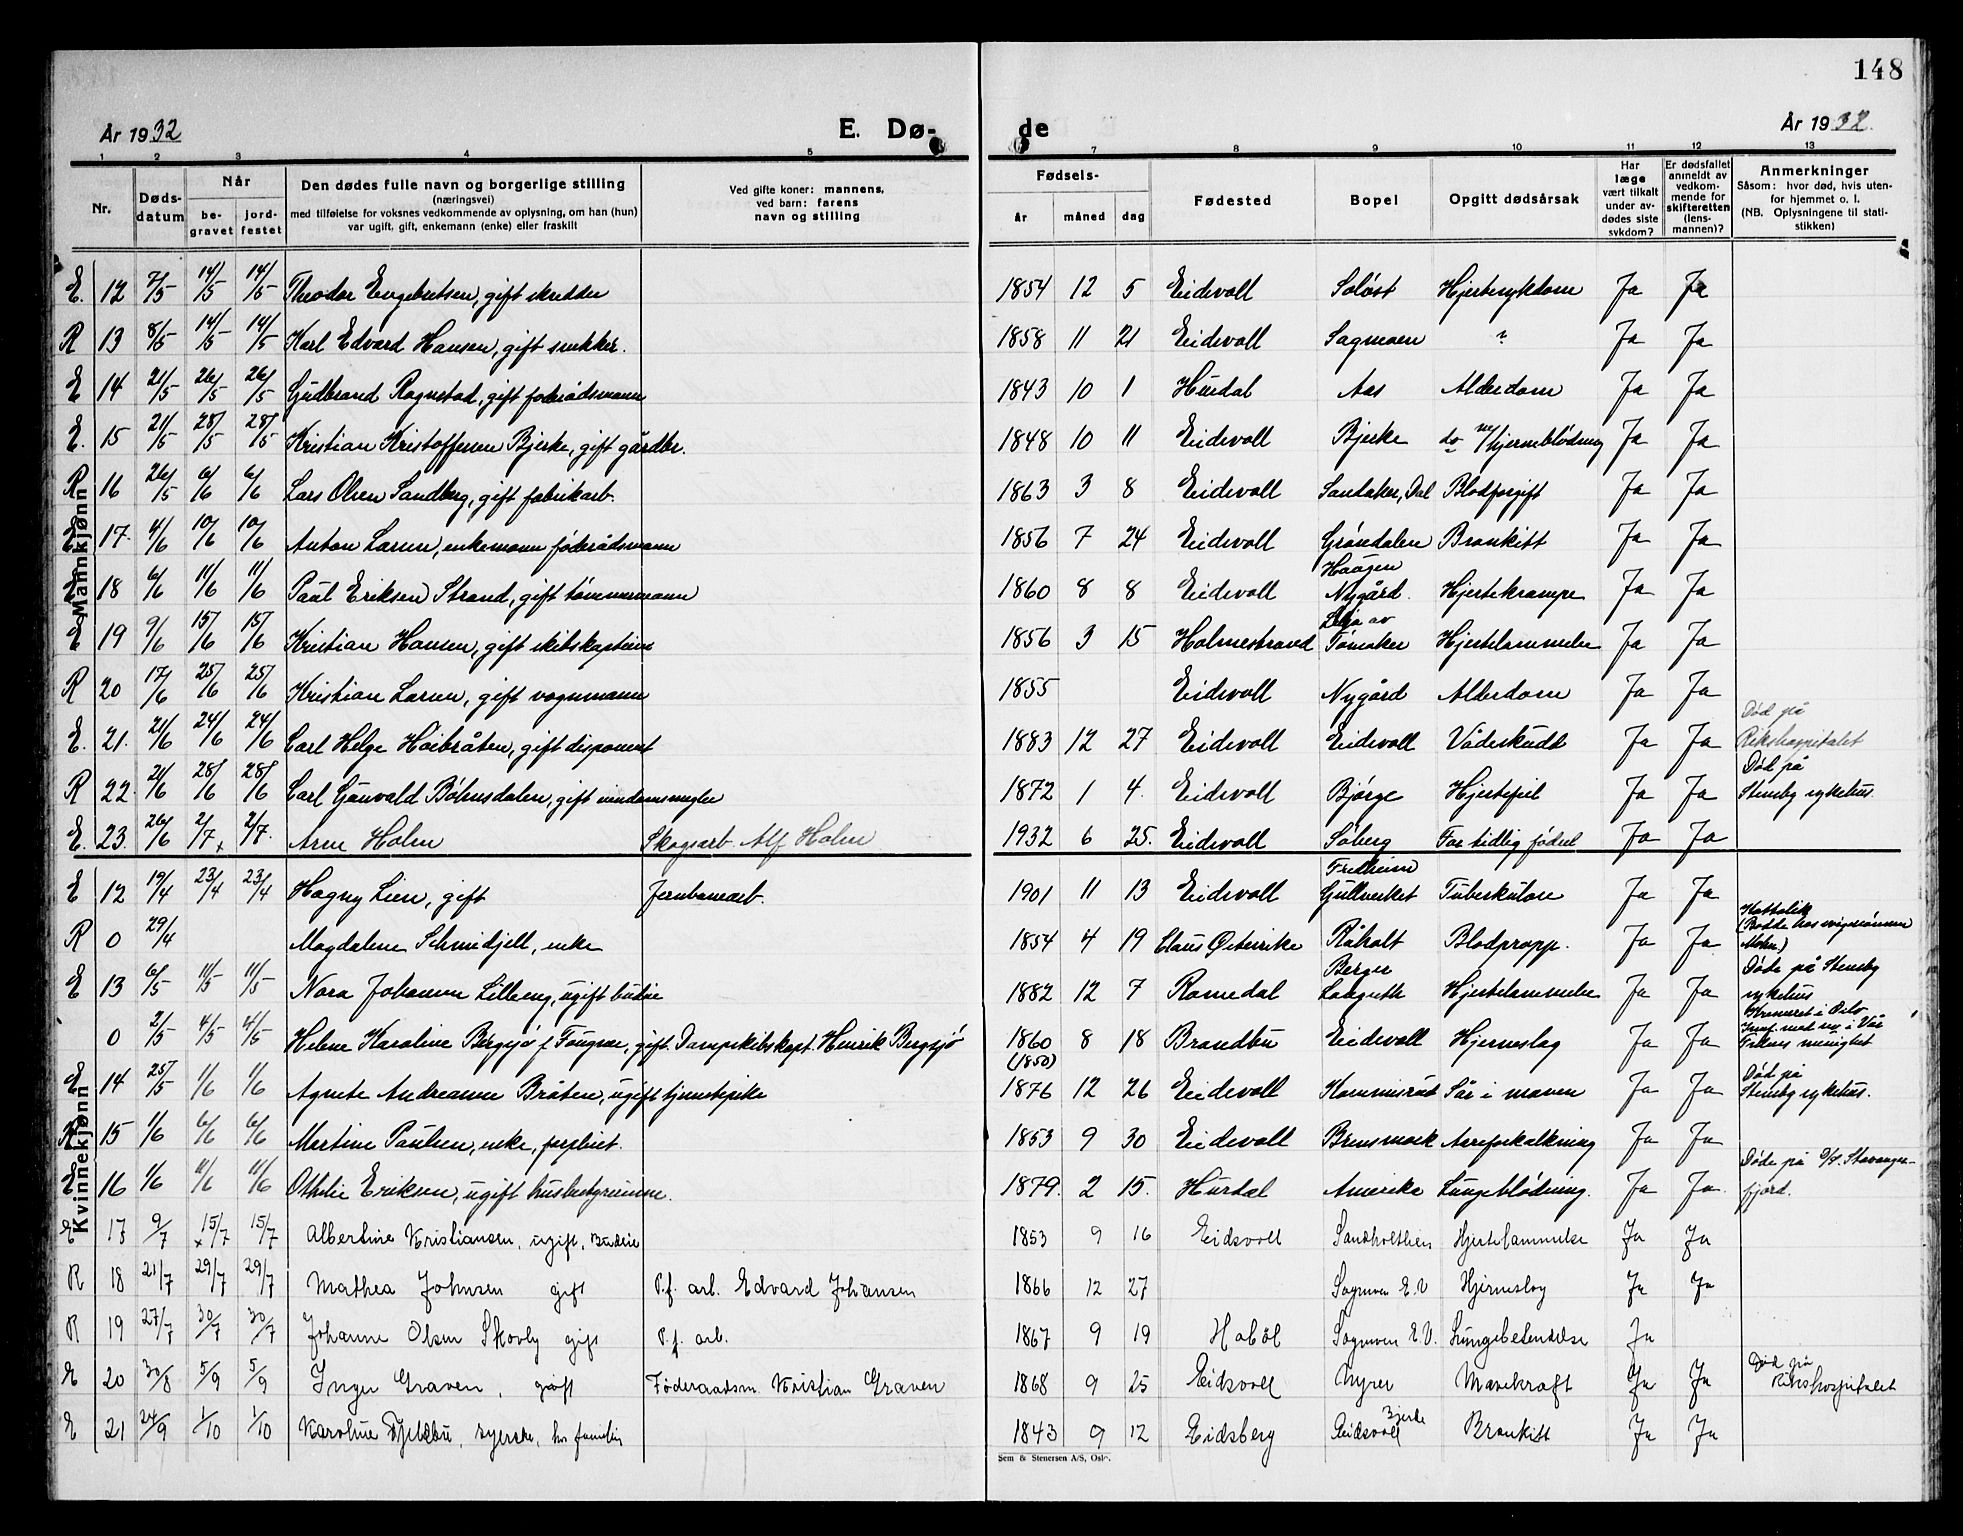 148
År 1932 E. Dø- de År 1932.
1 2 3 4 5 7 8 9 10 11 12 13
Nr. Døds-datum Når be-gravet jord-festet Den dødes fulle navn og borgerlige stilling (næringsvei) med tilføielse for voksnes vedkommende av oplysning, om han (hun) var ugift, gift, enkemann (enke) eller fraskilt Ved gifte koner: mannens, ved barn: farens navn og stilling Fødsels- år måned dag Fødested Bopel Opgitt dødsårsak Har læge vært tilkalt under av-dødes siste sykdom? Er dødsfallet anmeldt av vedkom-mende for skifteretten (lens-mannen)? Anmerkninger Såsom: hvor død, hvis uten-for hjemmet o. l. (NB. Oplysningene til stati-stikken)
Mannkjønn
E. 12 7/5 14/5 14/5 Theodor Engebretsen, gift skredder 1854 12 5 Eidsvoll Soløst Hjertesykdom Ja Ja
R 13 8/5 14/5 14/5 Karl Edvard Hansen, gift snekker. 1858 11 21 Eidsvoll Sagmoen ? Ja Ja
E 14 21/5 26/5 26/5 Gudbrand Rognstad, gift føderådsmann 1843 10 1 Hurdal Aas Alderdom Ja Ja
E. 15 21/5 28/5 28/5 Kristian Kristoffersen Bjerke, gift gårdbr. 1848 10 11 Eidsvoll Bjerke do m/hjerneblødning Ja Ja
R 16 26/5 6/6 6/6 Lars Olsen Sandberg, gift fabrikarb. 1863 3 8 Eidsvoll Sandaker, Dal Blodforgift Ja Ja
E 17. 4/6 10/6 10/6 Anton Larsen, enkemann føderådsmann 1856 7 24 Eidsvoll Gröndalen Bronkitt Ja Ja
E 18 6/6 11/6 11/6 Paul Eriksen Strand, gift tømmermann 1860 8 8 Eidsvoll Haagen Nygård. Hjertekrampe Ja Ja
E 19 9/6 15/6 15/6 Kristian Hansen, gift skibskaptein 1856 3 15 Holmestrand Tømaker Hjertelammelse Ja Ja
R 20 17/6 25/6 25/6 Kristian Larsen, gift vognmann 1855 Eidsvoll Nygård Alderdom Ja Ja
E. 21. 21/6 24/6 24/6 Carl Helge Høibråten, gift disponent 1883 12 27 Eidsvoll Eidsvoll Vådeskudt Ja Ja Død på Rikshospitalet
R 22. 24/6 28/6 28/6 Carl Gunvald Böhnsdalen, gift eiendomsmegler 1872 1 4. Eidsvoll Bjørge Hjertefeil Ja Ja Død på Stensby sykehus.
E. 23. 26/6 2/7 x 2/7. Arne Holm Skogsarb. Alf Holm 1932 6 25. Eidsvoll Søberg For tidlig fødsel Ja Ja
Kvinnekjønn
E 12 19/4 23/4 23/4 Hagny Lien, gift Jernbanearb. 1901 11 13 Eidsvoll Fredheim Gullverket Tuberkulose Ja Ja
R 0 29/4 Magdalene Schmidjell, enke 1854 4 19 Claus Østerrike Råholt Blodpropp. Ja Ja Kattolik (Bodde hos svigersønnen Mohn)
E 13 6/5 11/5 11/5 Nora Johanne Lilleeng, ugift budeie 1882 12 7 Romedal Berger Langseth Hjertelammelse Ja Ja Døde på Stensby sykehus
0 2/5 4/5 4/5 Helene Karoline Bergsjø f Fougner, gift. Dampskibskapt. Henrik Bergsjø 1860 (1850) 8 18 Brandbu Eidsvoll Hjerneslag Ja Ja Kremeret i Oslo Vår Frelsers menighet
E 14 25/5 1/6 1/6 Agnete Andreanne Bråten, ugift tjenestepike 1876 12 26 Eidsvoll Kommisrud Sår i maven Ja Ja Død på Stensby sykehus.
R 15 1/6 6/6 6/6 Martine Paulsen, enke, forpleiet. 1853 9 30 Eidsvoll Brensmork Areforkalkning Ja Ja
E 16 1/6 11/6 11/6 Othilie Eriksen, ugift husbestyrerinne. 1879. 2 15. Hurdal Amerika Lungeblødning. Ja Ja Døde på D/S. Stavanger-fjord.
E 17 9/7 x 15/7 15/7 Albertine Kristiansen, ugift, Budeie 1853 9 16 Eidsvoll Sandholtlien Hjertelammelse Ja Ja
R 18 21/7 29/7 29/7 Mathea Johnsen gift P.f. arb. Edvard Johansen 1866 12 27 Sagmoen E.V Hjerneslag Ja Ja
R 19 27/7 30/7 30/7 Johanne Olsen Skovly gift P.f. arb. 1867 9 19 Hobøl Sagmoen E.V. Lungebetendelse Ja
E 20 30/8 5/9 5/9 Inger Graven, gift Föderaadsm. Kristian Graven 1868 9 25 Eidsvoll Nyrer Mavekræft Ja Ja Død på Rikshospitalet
E 21 24/9 1/10 1/10 Karoline Fjeldbu, syerske, hos familie 1843 9 12 Eidsberg Bjerke Eidsvoll Bronkitt Ja Ja
Sem & Stenersen A/S, Oslo.